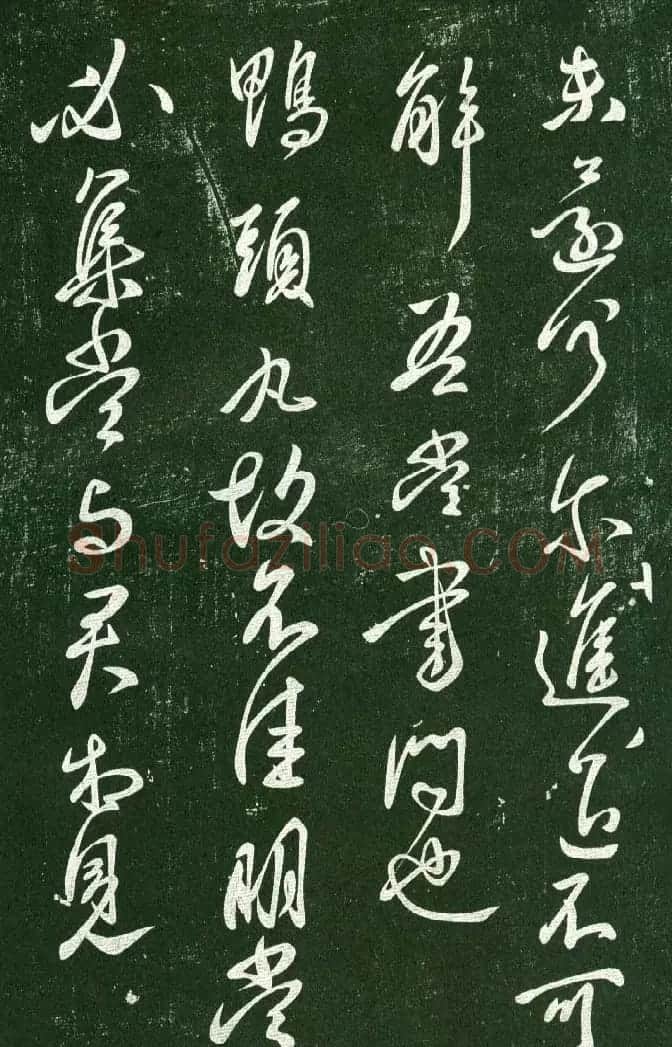 分尔進退不可
解吾當書問也
鴨頭丸故不佳明當
必集當與君相見
Shufaziliao.COM